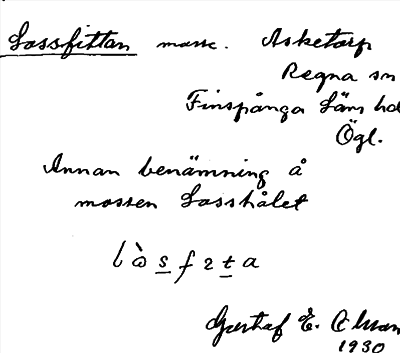 Lassfittan mosse. Asketorp
Regna sn
Finspånga Läns hd
Ögl.
Annan benämning å
mossen Lasshålet
l ò s f ɩ t a
Gustaf E.
1930